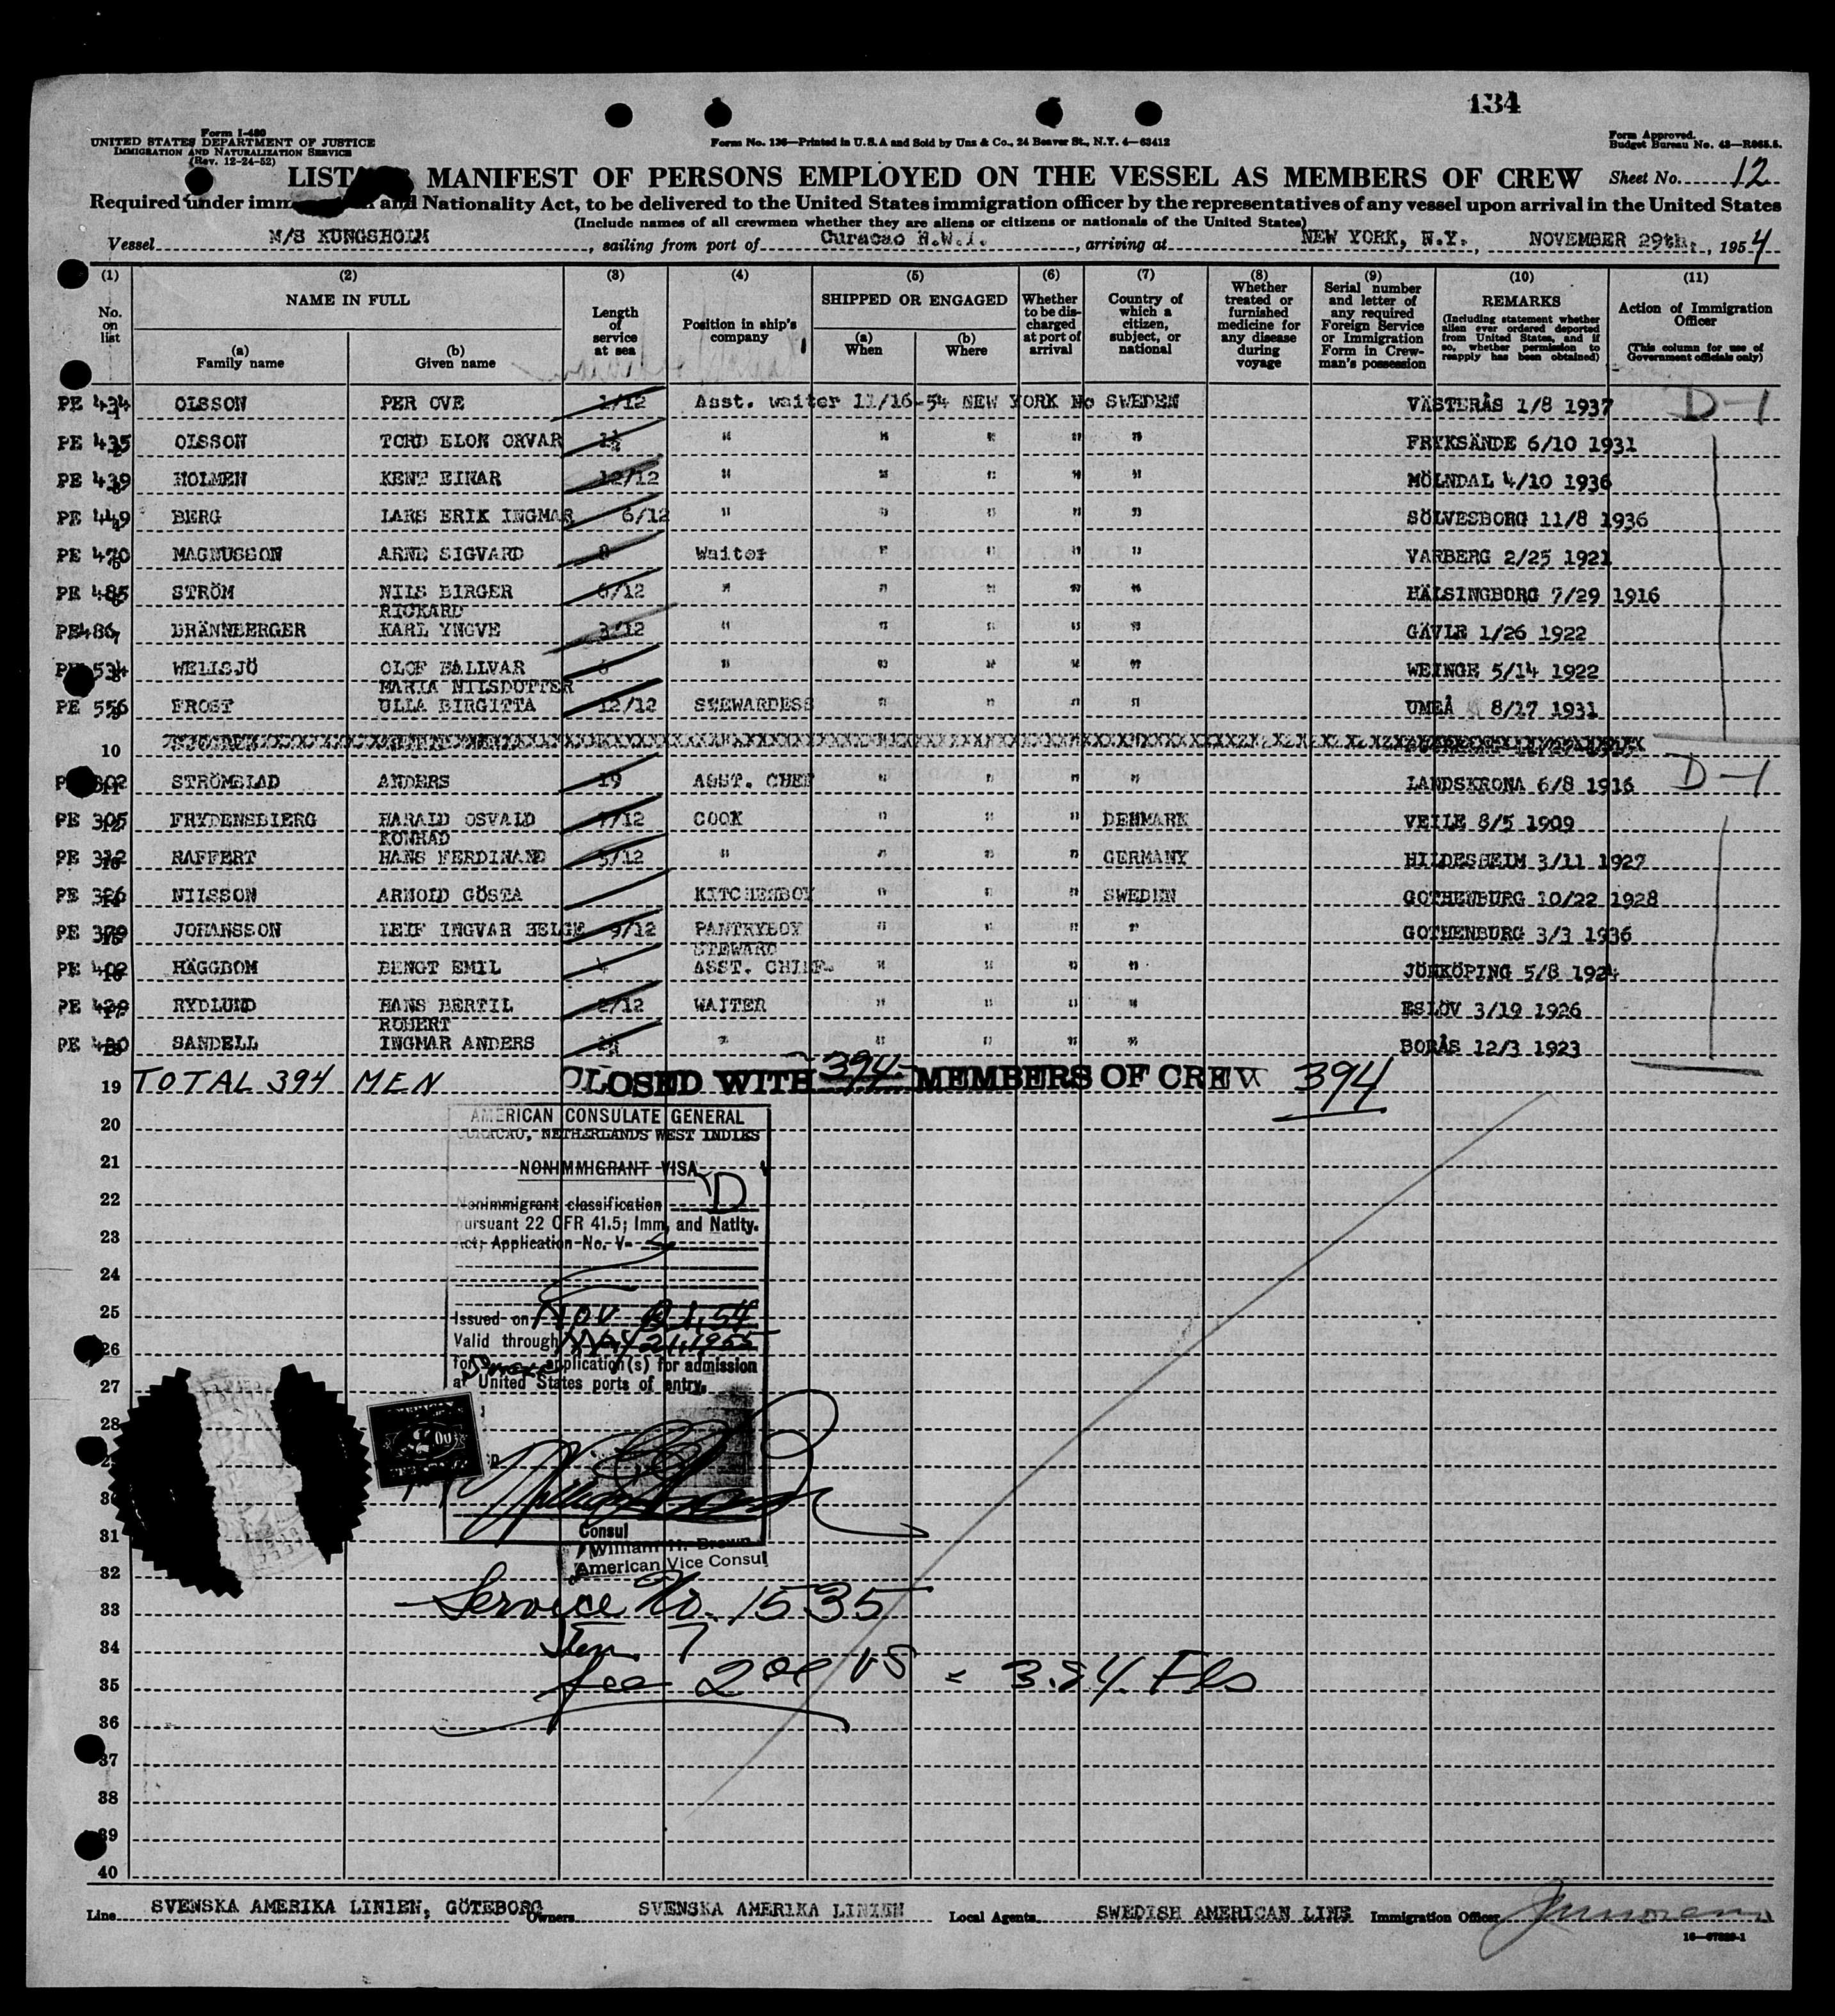 134
Form I-480
UNITED STATES DEPARTMENT OF JUSTICE
IMMIGRATION AND NATURALIZATION SERVICE
(Rev. 12-24-52)
Form No. 136—Printed in U.S.A and Sold by Unz & Co., 24 Beaver St., N.Y. 4—63412
Form Approved.
Budget Bureau No. 43—R065.5.
LIST MANIFEST OF PERSONS EMPLOYED ON THE VESSEL AS MEMBERS OF CREW Sheet No. 12
Required under imm and Nationality Act, to be delivered to the United States immigration officer by the representatives of any vessel upon arrival in the United States
(Include names of all crewmen whether they are aliens or citizens or nationals of the United States)
Vessel M/S KUNGSHOLM, sailing from port of Curacao N.W.I., arriving at NEW YORK, N.Y., NOVEMBER 29th, 1954
(1) (2) (3) (4) (5) (6) (7) (8) (9) (10) (11)
No. on list
NAME IN FULL
(a) Family name
(b) Given name
Length of service at sea
Position in ship's company
SHIPPED OR ENGAGED
(a) When
(b) Where
Whether to be discharged at port of arrival
Country of which a citizen, subject, or national
Whether treated or furnished medicine for any disease during voyage
Serial number and letter of any required Foreign Service or Immigration Form in Crewman's possession
REMARKS
(Including statement whether alien ever ordered deported from United States, and if so, whether permission to reapply has been obtained)
Action of Immigration Officer
(This column for use of Government officials only)
PE 434 OLSSON PER OVE 1/12 Asst. waiter 11/16-54 NEW YORK No SWEDEN VÄSTERÅS 1/8 1937 D-1
PE 435 OLSSON TORD ELON ORVAR " " " " " FRYKSÄNDE 6/10 1931
PE 439 HOLMEN KENT EINAR 12/12 " " " " " MÖLNDAL 4/10 1936
PE 449 BERG LARS ERIK INGMAR 6/12 " " " " " SÖLVESBORG 11/8 1936
PE 470 MAGNUSSON ARNE SIGVARD 8 Waiter " " " " VARBERG 2/25 1921
PE 485 STRÖM NILS BIRGER 6/12 " " " " " HÄLSINGBORG 7/29 1916
RICKARD
PE 486 BRÄNNBERGER KARL YNGVE 3/12 " " " " " GÄVLE 1/26 1922
PE 534 WELLSJÖ OLOF HALLVAR 6 " " " " " WEINGE 5/14 1922
MARIA NILSDOTTER
PE 556 FROST ULLA BIRGITTA 12/12 STEWARDESS " " " " UMEÅ 8/17 1931
10
PE 302 STRÖMBLAD ANDERS 19 ASST. CHEF " " " " LANDSKRONA 6/8 1916 D-1
PE 305 FRYDENSBIERG HARALD OSVALD 7/12 COOK " " " DENMARK VEILE 8/5 1909
KONRAD
PE 312 RAFFERT HANS FERDINAND 5/12 " " " " GERMANY HILDESHEIM 3/11 1927
PE 326 NILSSON ARNOLD GÖSTA KITCHENBOY " " " SWEDEN GOTHENBURG 10/22 1928
PE 379 JOHANSSON LEIF INGVAR HELGE 9/12 PANTRYBOY " " " " GOTHENBURG 3/3 1936
STEWARD
PE 402 HÄGGBOM BENGT EMIL 4 ASST. CHIEF " " " " JÖNKÖPING 5/8 1924
PE 429 RYDLUND HANS BERTIL 2/12 WAITER " " " " ESLÖV 3/19 1926
ROBERT
PE 480 SANDELL INGMAR ANDERS " " " " " BORÅS 12/3 1923
19 TOTAL 394 MEN CLOSED WITH 394 MEMBERS OF CREW 394
20
21
22
23
24
25
26
27
28
30
31
32
33
34
35
36
37
38
39
40
AMERICAN CONSULATE GENERAL
CURACAO, NETHERLANDS WEST INDIES
NONIMMIGRANT VISA
Nonimmigrant classification D
pursuant 22 CFR 41.5; Imm. and Natlty.
Act; Application No. V-
Issued on Nov 21, 54
Valid through May 21, 1955
for application(s) for admission
at United States ports of entry.
Consul
William H. Brown
American Vice Consul
Service No. 1535
Item 7
fee 2.00 US = 3.84 Fls
Line SVENSKA AMERIKA LINIEN, GÖTEBORG Owners SVENSKA AMERIKA LINIEN Local Agents SWEDISH AMERICAN LINE Immigration Officer
16—67829-1